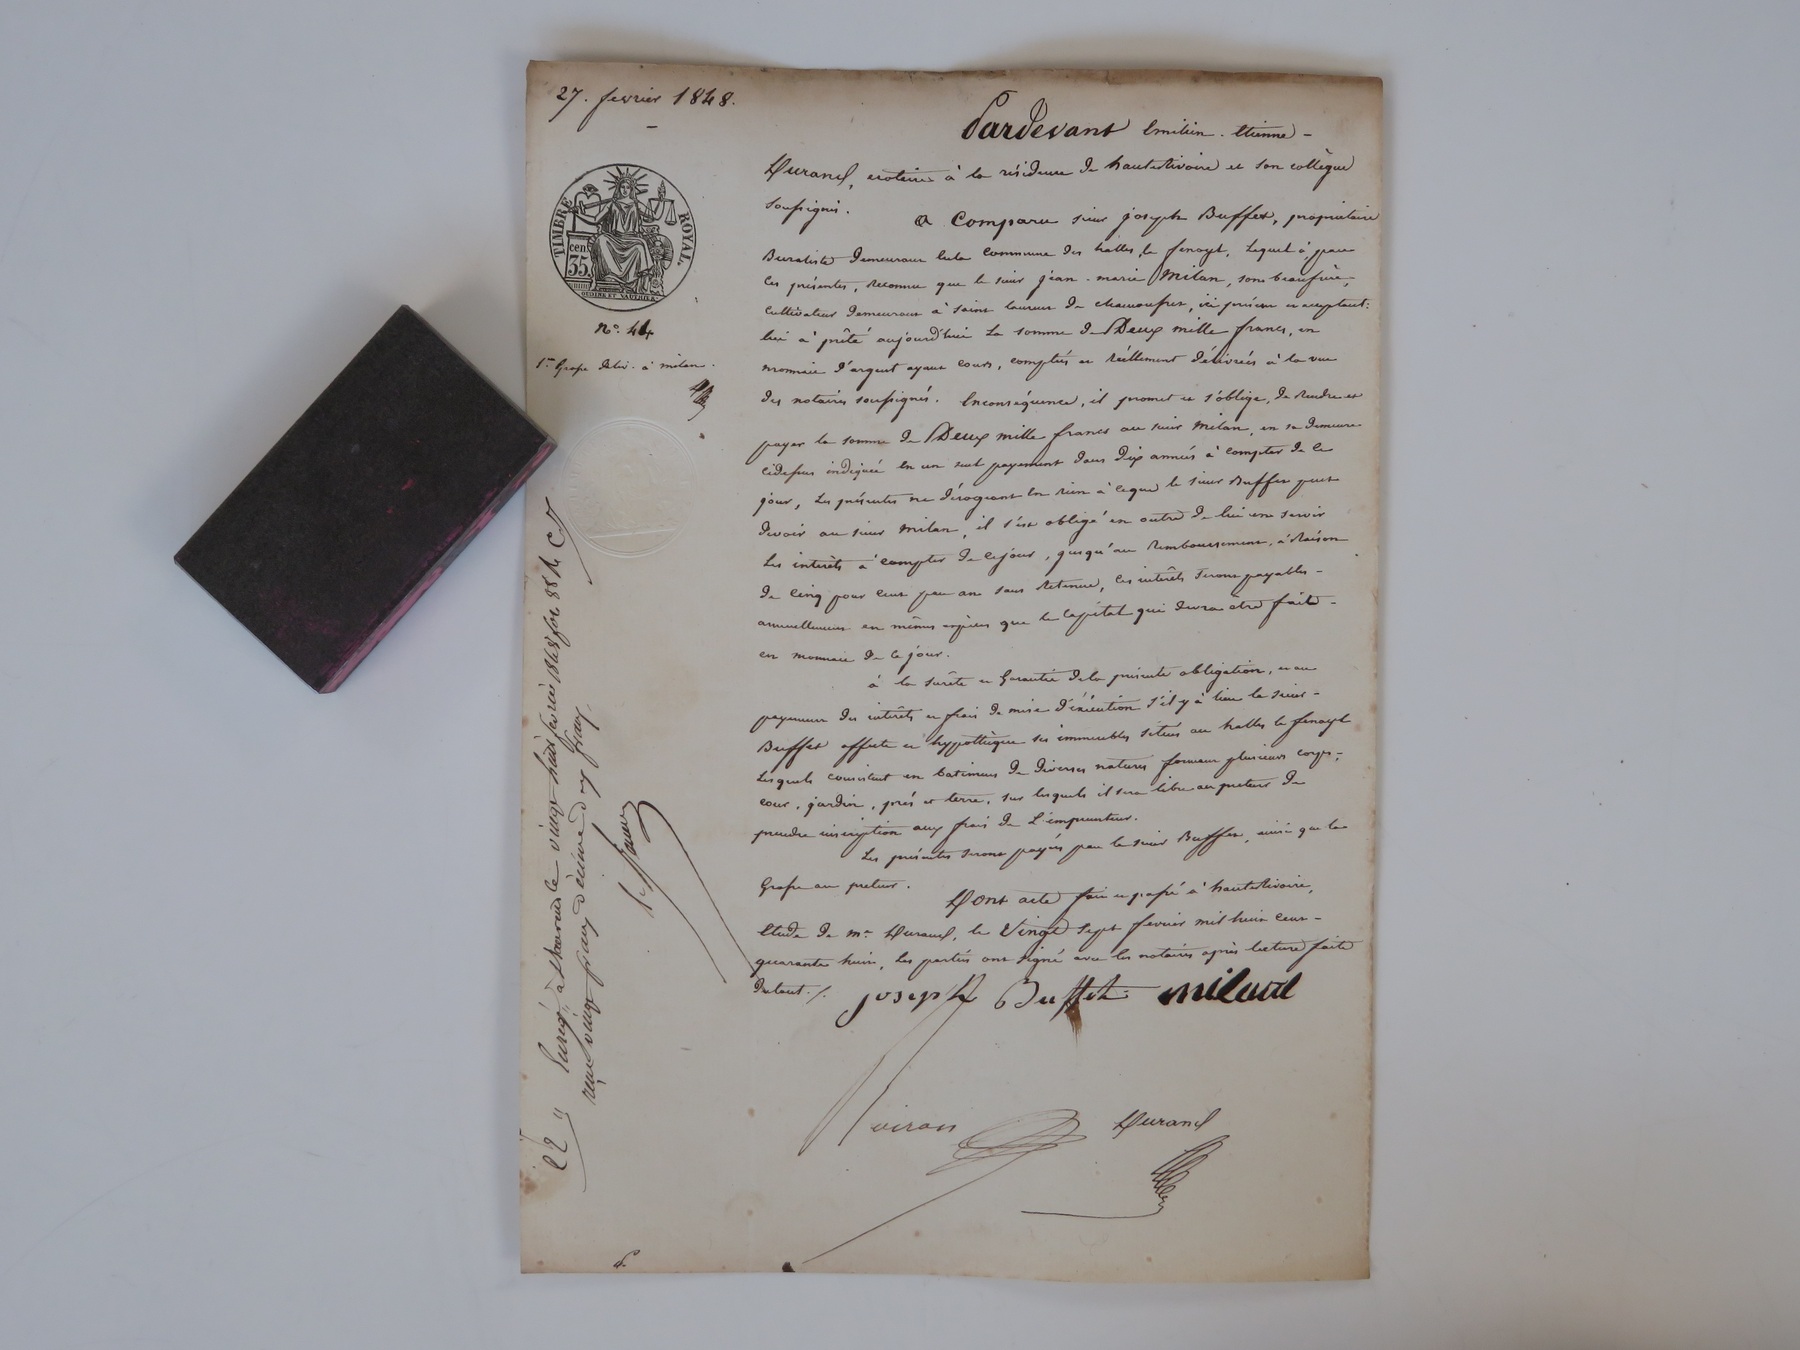 27. fevrier 1848.
Pardevant Emilien. Etienne -
Durand, notaire à la résidence de hauterivoire et son collègue
soussignés. a Comparu sieur joseph Buffet, propriétaire
Buraliste demeurant en la commune des halles, le fenoyl, Lequel à par
ces présentes, Reconnu que le sieur jean-marie Milan, son beaufrère,
cultivateur demeurant à saint laurent de chamousset, ici présent et acceptant:
lui à prêté aujourd'hui La somme de Deux mille francs, en
monnaie d'argent ayant cours, comptés et Réellement délivrés à la vue
des notaires soussignés. Enconséquence, il promet et s'oblige, de Rendre et
payer la somme de Deux mille francs au sieur Milan, en sa demeure
cidessus indiquée En un seul payement dans dix années à compter de ce
jour, Les présentes ne dérogeant En rien à ceque le sieur Buffet peut
devoir au sieur Milan, il s'est obligé en outre de lui en servir
Les intérêts à compter de cejour, jusqu'au Remboursement, à Raison
de Cinq pour Cent par an sans Retenue, Ces intérêts seront payables -
annuellement en mêmes espèces que le Capital qui devra être faite -
en monnaie de ce jour.
à la surête et Garantie dela présente obligation, et au
payement des intérêts et frais de mise d'éxécution s'il y à lieu le sieur -
Buffet affecte et hyppothèque ses immeubles situés au halles le fenoyl
Lesquels consistent en batimens de diverses natures formant plusieurs corps,
cour, jardin, prés et terre, sur lesquels il sera libre au preteur de
prendre inscription aux frais de L'emprunteur.
Les présentes seront payés par le sieur Buffet, ainsi que la
Grosse au preteur. Dont acte fait et passé à hauterivoire,
Etude de Me Durand, le Vingt sept fevrier mil huit cent -
quarante huit, Les parties ont signé avec les notaires après lecture faite
du tout ./.
joseph Buffet milan
Durand
TIMBRE ROYAL.
cen. 35.
n° 44
1re Grosse deliv. à milan.
vingt huit fevrier 1848 fol 88